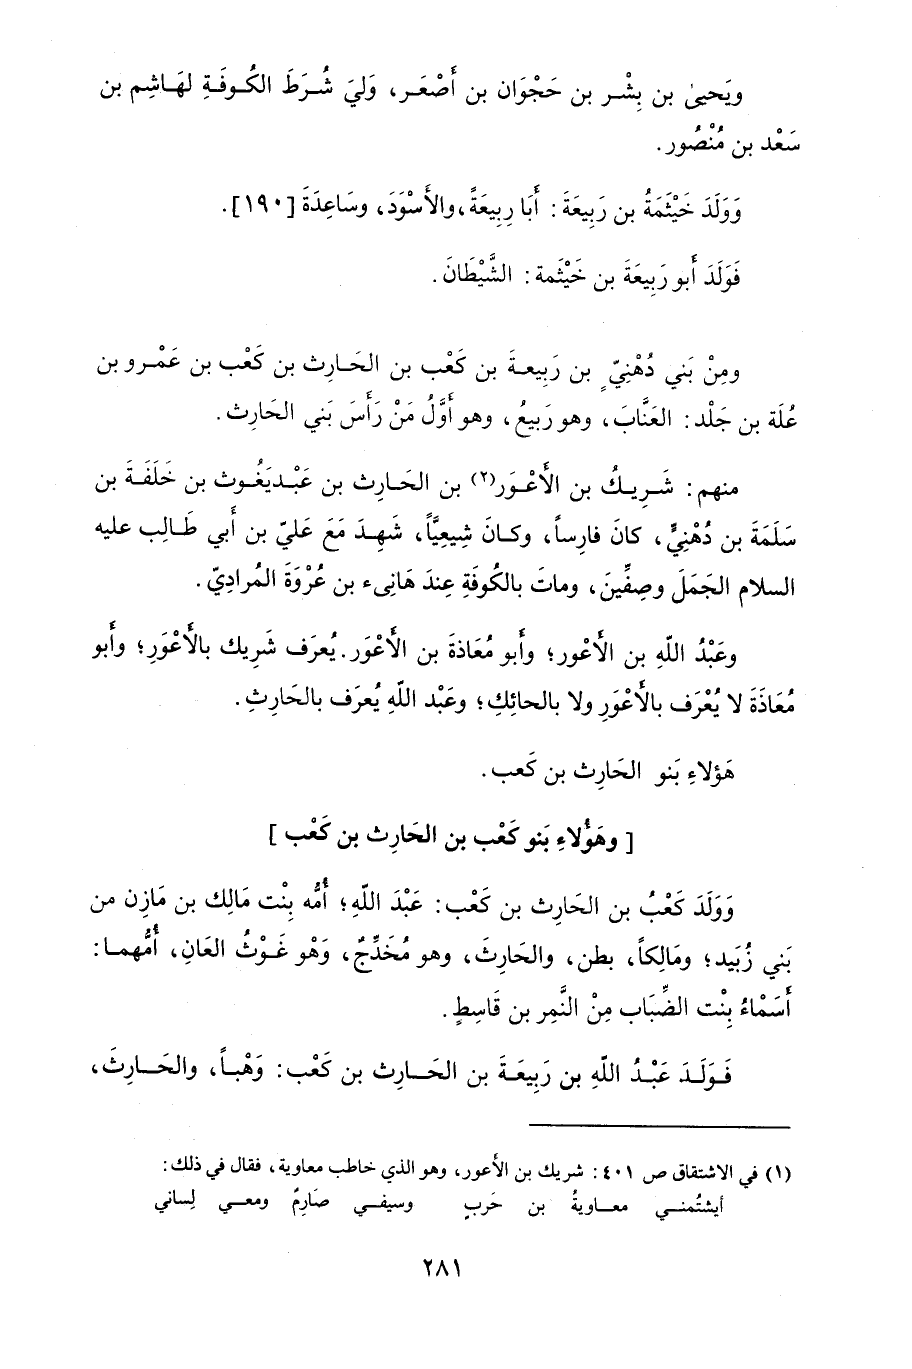 ويَحيىٰ بن بِشْر بن حَجْوَان بن أَصْعَر، وَليَ شُرَطَ الكُوفَةِ لهَاشِم بن
سَعْد بن مُنْصُور.
وَوَلَدَ خَيْثَمةُ بن رَبِيعَةَ: أَبَا رِبِيعَةً، والأَسْوَدَ، وسَاعِدَةَ [١٩٠].
فَوَلَدَ أَبو رَبِيعَةَ بن خَيْثَمة: الشَّيْطَانَ.
ومِنْ بَني دُهْنِيٍّ بن رَبِيعةَ بن كَعْب بن الحَارِث بن كَعْب بن عَمْرو بن
عُلَة بن جَلْد: العَنَّابَ، وهو رَبيعُ، وهو أَوَّلُ مَنْ رَأَسَ بَني الحَارِث.
منهم: شَرِيكُ بن الأَعْوَر(٢) بن الحَارِث بن عَبْديَغُوث بن خَلَفَةَ بن
سَلَمَةَ بن دُهْنِيٍّ، كانَ فارِساً، وكانَ شِيعِيَّاً، شَهِدَ مَعَ عَليّ بن أَبي طَالِب عليه
السلام الجَمَلَ وصِفِّينَ، وماتَ بالكُوفَةِ عِندَ هَانِىء بن عُرْوَةَ المُرادِيّ.
وعَبْدُ اللّهِ بن الأَعْور؛ وأَبو مُعَاذةَ بن الأَعْوَر. يُعرَف شَرِيك بالأَعْوَرِ؛ وأَبو
مُعَاذَةَ لا يُعْرَف بالأَعْوَرِ ولا بالحائِكِ؛ وعَبْد اللّهِ يُعرَف بالحَارِثِ.
هَؤلاءِ بَنو الحَارِث بن كَعب.
[ وهَؤُلاءِ بَنو كَعْب بن الحَارِث بن كَعْب ]
وَوَلَدَ كَعْبُ بن الحَارِث بن كَعْب: عَبْدَ اللّهِ؛ أُمُّه بِنْت مَالِك بن مَازِن من
بَني زُبَيد؛ ومَالِكاً، بطن، والحَارِثَ، وهو مُخَدِّجٌ، وَهْو غَوْثُ العَانِ، أُمُّهما:
أَسَمْاءُ بِنْت الضِّبَاب مِنْ النَّمِر بن قَاسِطٍ.
فَوَلَدَ عَبْدُ اللّهِ بن رَبِيعَةَ بن الحَارِث بن كَعْب: وَهْباً، والحَارِثَ،
(١) في الاشتقاق ص ٤٠١: شريك بن الأعور، وهو الذي خاطب معاوية، فقال في ذلك:
أيشتُمني معاويةُ بن حَربٍ وسيفي صَارِمٌ ومعي لِساني
٢٨١